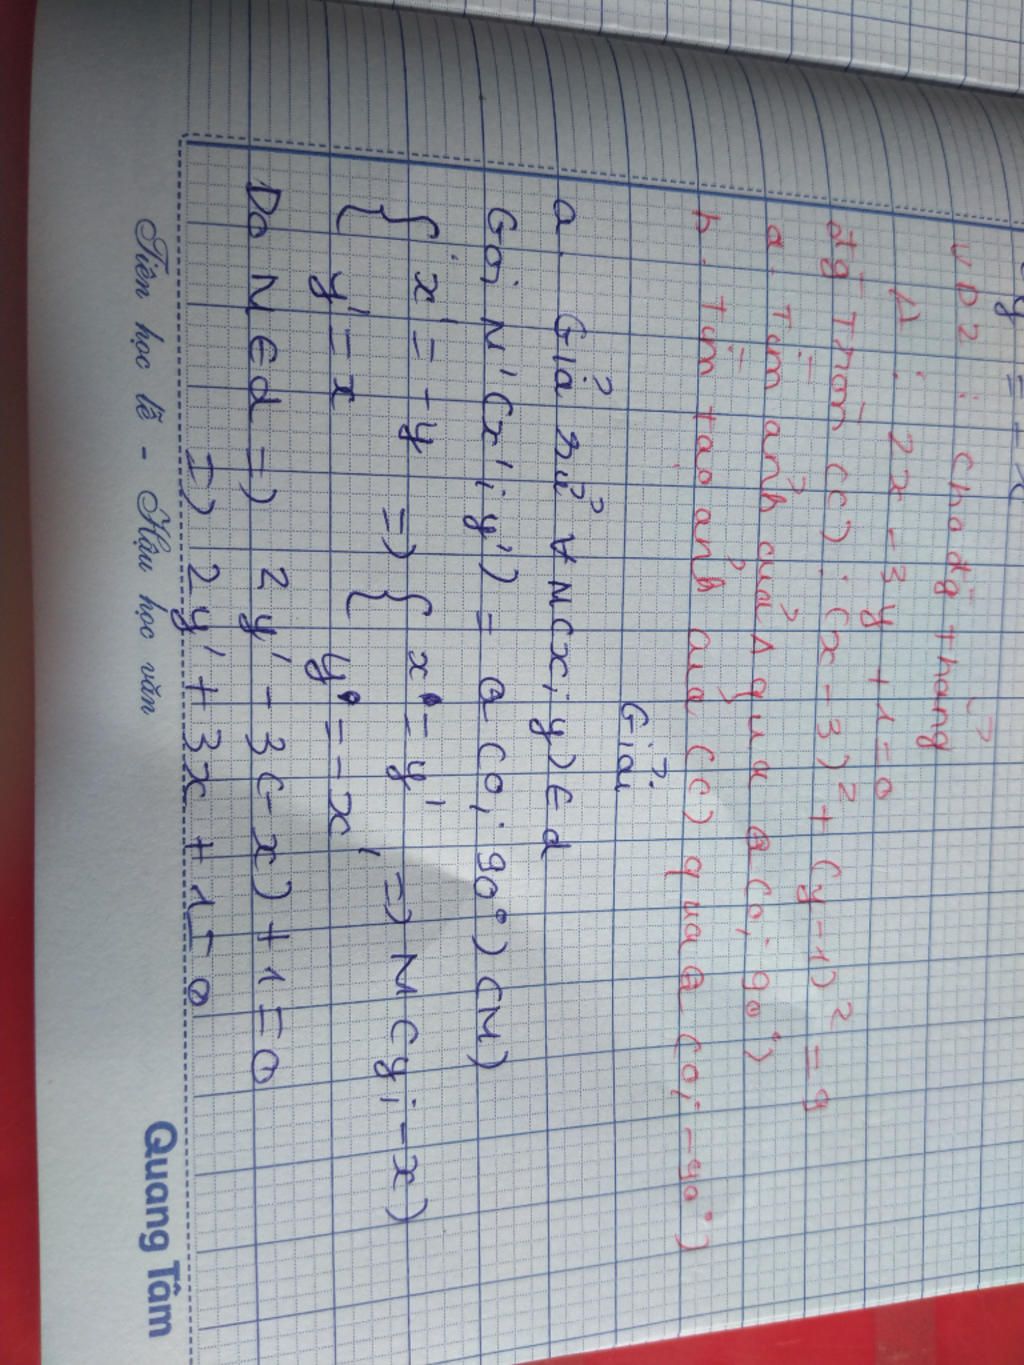 y = - x
VD2 : Cho đg thẳng
Δ : 2x - 3y + 1 = 0
đg tròn (C) : (x - 3)² + (y - 1)² = 9
a. Tìm ảnh của Δ qua Q(O; 90°)
b. Tìm tạo ảnh của (C) qua Q(O; -90°)
Giải
a. Giả sử ∀ M(x; y) ∈ d
Gọi M'(x'; y') = Q(O; 90°)(M)
{ x' = -y => { x = y' => M(y; -x)
{ y' = x { y = -x'
Do M ∈ d => 2y' - 3(-x) + 1 = 0
=> 2y' + 3x + 1 = 0
Tiên học lễ - Hậu học văn
Quang Tâm